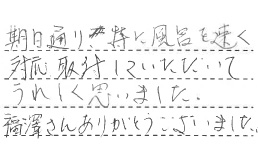 期日通り、特に風呂を速く
対応取付していただいて
うれしく思いました。
福澤さんありがとうございました。